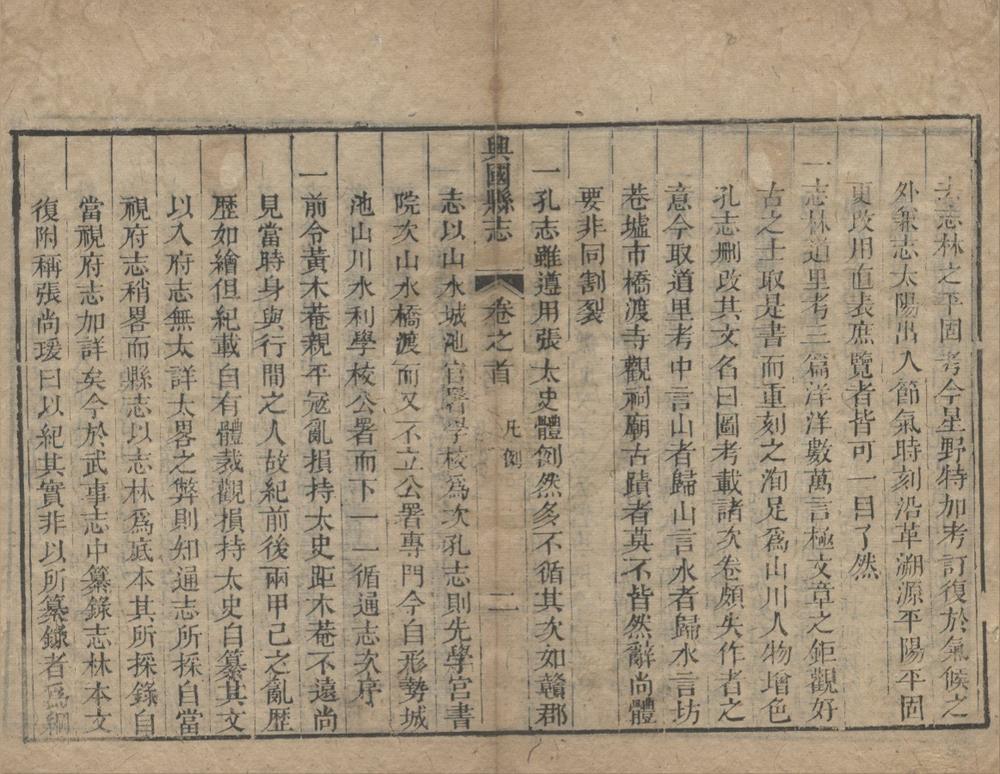 志林之平固考今星野特加考訂復於氣候之
外兼志太陽出入節氣時刻沿革溯源平陽平固
更改用直表庶覽者皆可一目了然
一志林道里考三篇洋洋數萬言極文章之鉅觀好
古之士取是書而重刻之洵足爲山川人物增色
孔志刪改其文名曰圖考載諸次卷頗失作者之
意今取道里考中言山者歸山言水者歸水言坊
巷墟市橋渡寺觀祠廟古蹟者莫不皆然辭尚體
要非同割裂
一孔志雖遵用張太史體例然多不循其次如贛郡
興國縣志 卷之首 凡例 二
志以山水城池官署學校爲次孔志則先學宮書
院次山水橋渡而又不立公署專門今自形勢城
池山川水利學校公署而下一一循通志次序
一前令黃木菴親平冦亂損持太史距木菴不遠尚
見當時身與行間之人故紀前後兩甲己之亂歷
歷如繪但紀載自有體裁觀損持太史自纂其文
以入府志無太詳太畧之弊則知通志所採自當
視府志稍畧而縣志以志林爲底本其所採錄自
當視府志加詳矣今於武事志中纂錄志林本文
復附稱張尚瑗曰以紀其實非以所纂錄者爲綱